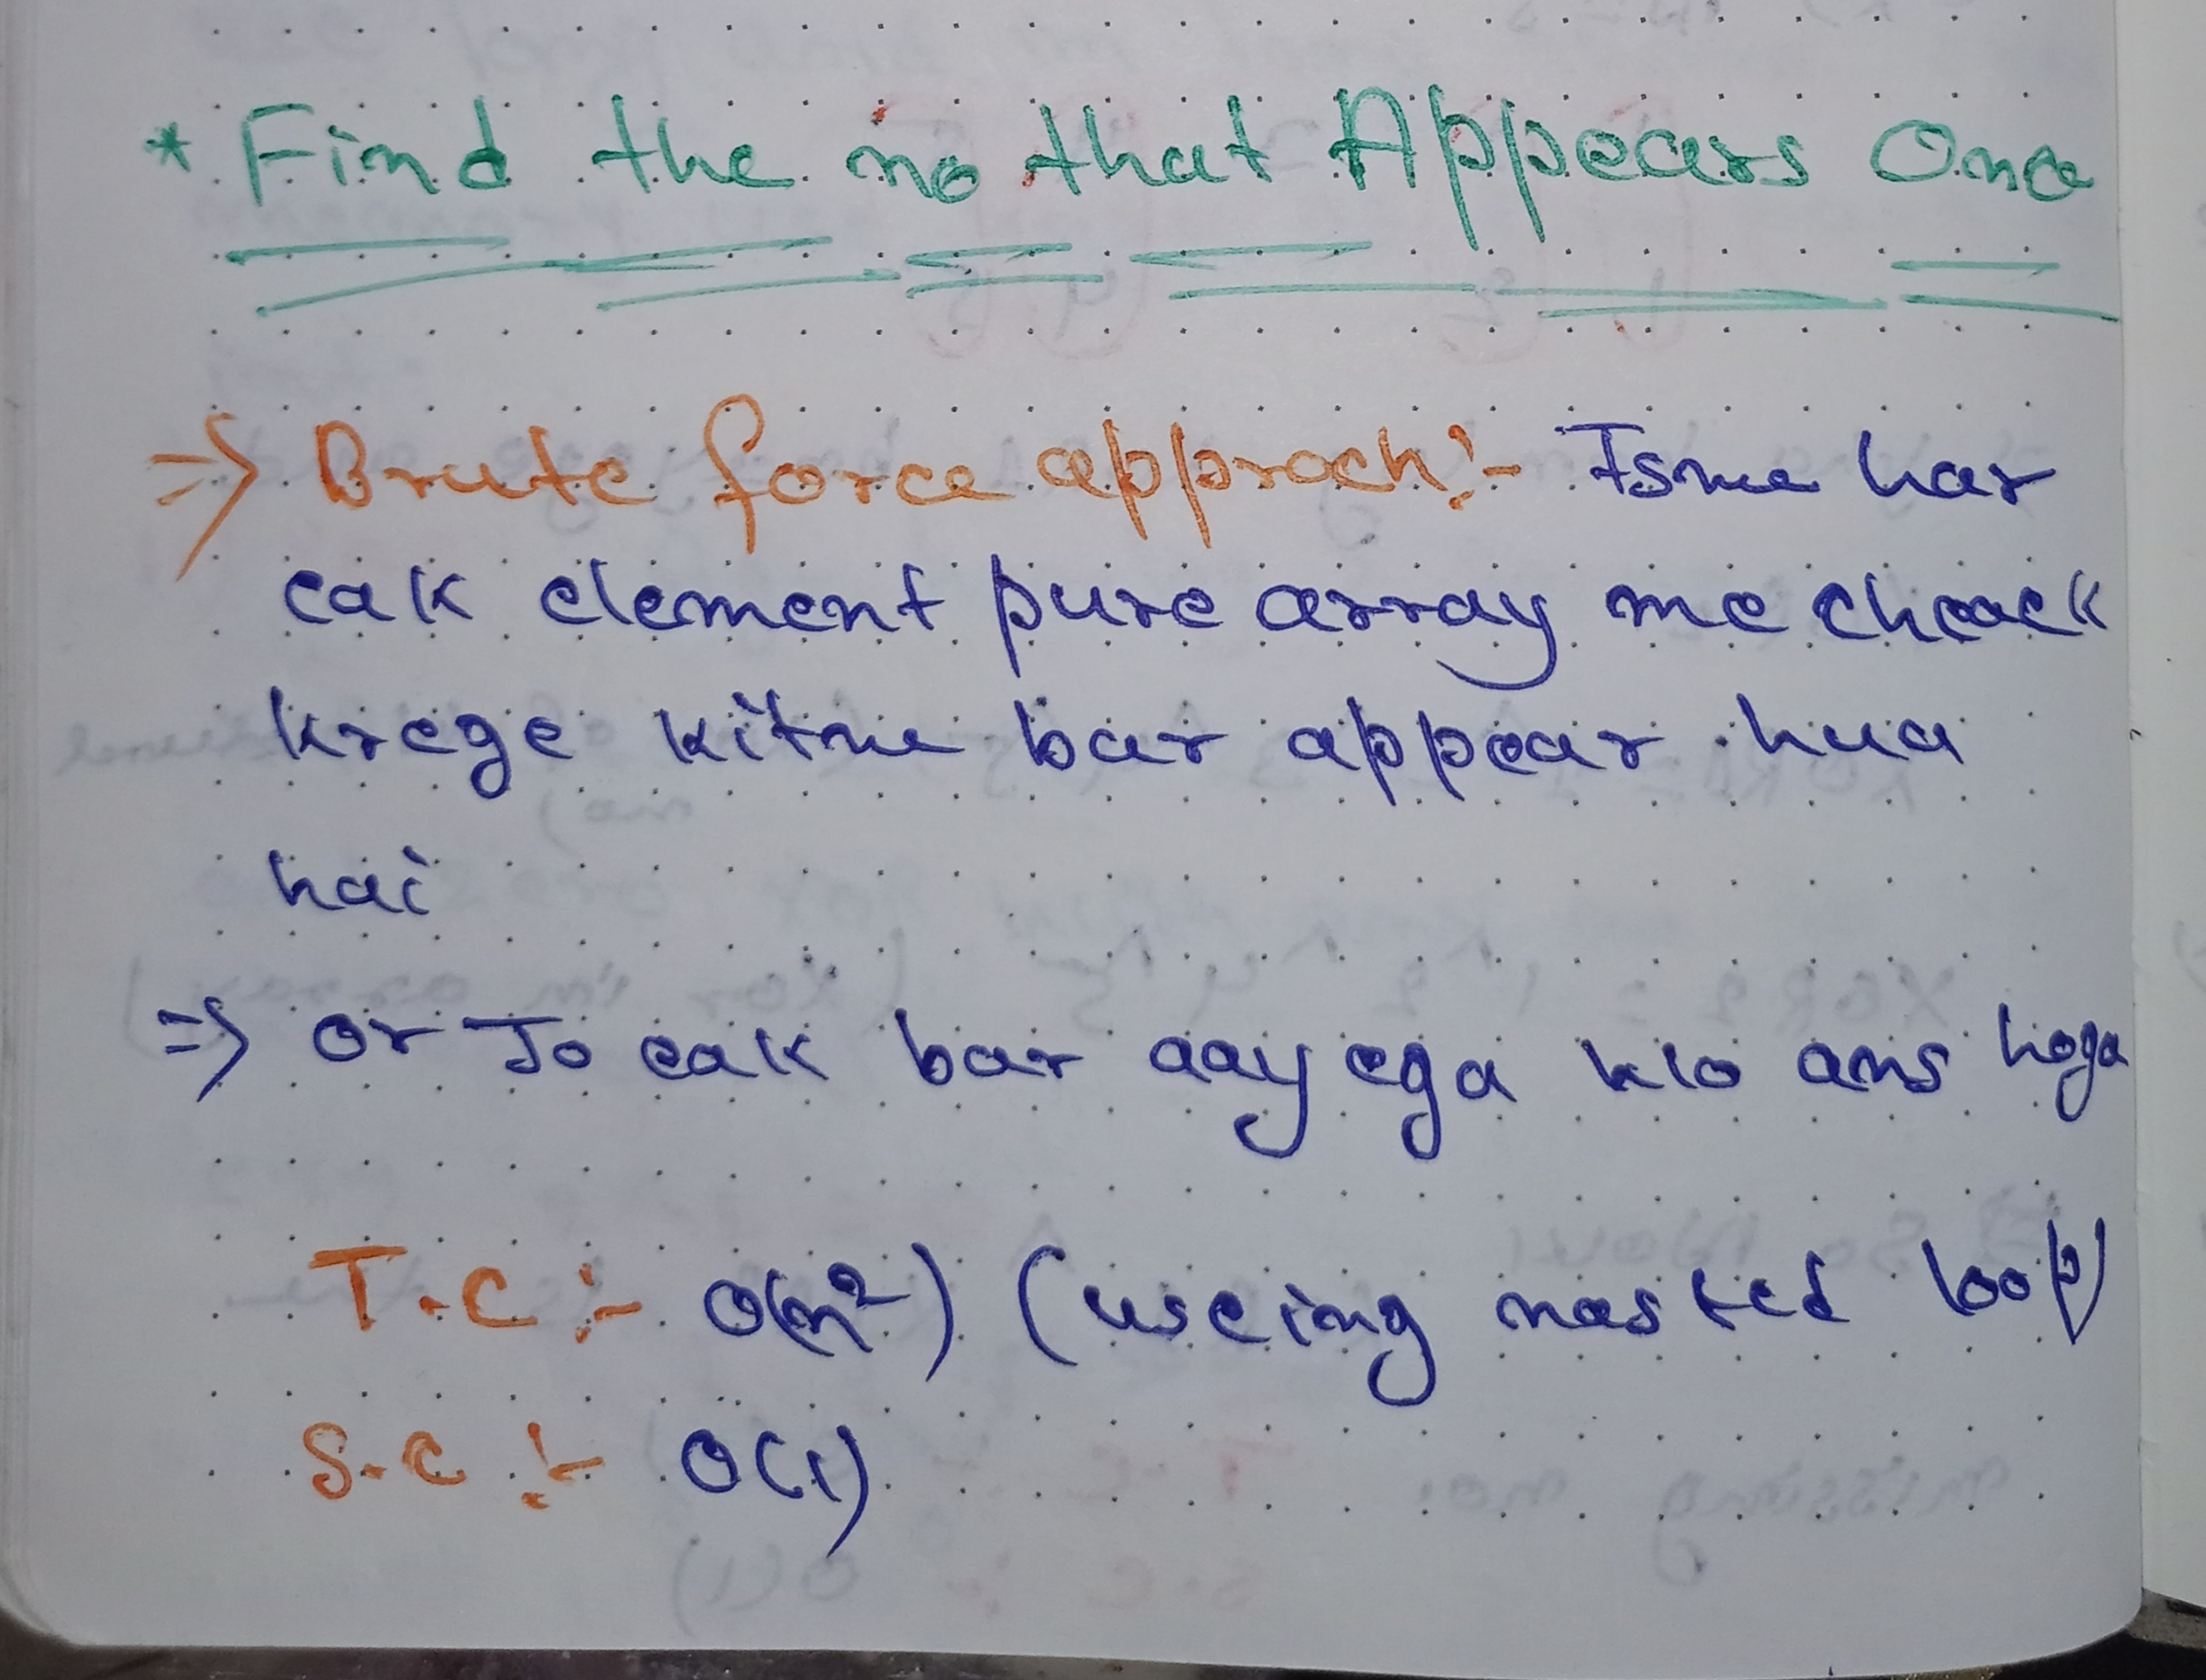 * Find the no that Appears Once
=> Brute force approch :- Isme har
eak element pure array me cheack
krege kitne bar appear hua
hai
=> or Jo eak bar aayega wo ans hoga
T.C :- O(n²) (useing nasted loop)
S.C :- O(1)